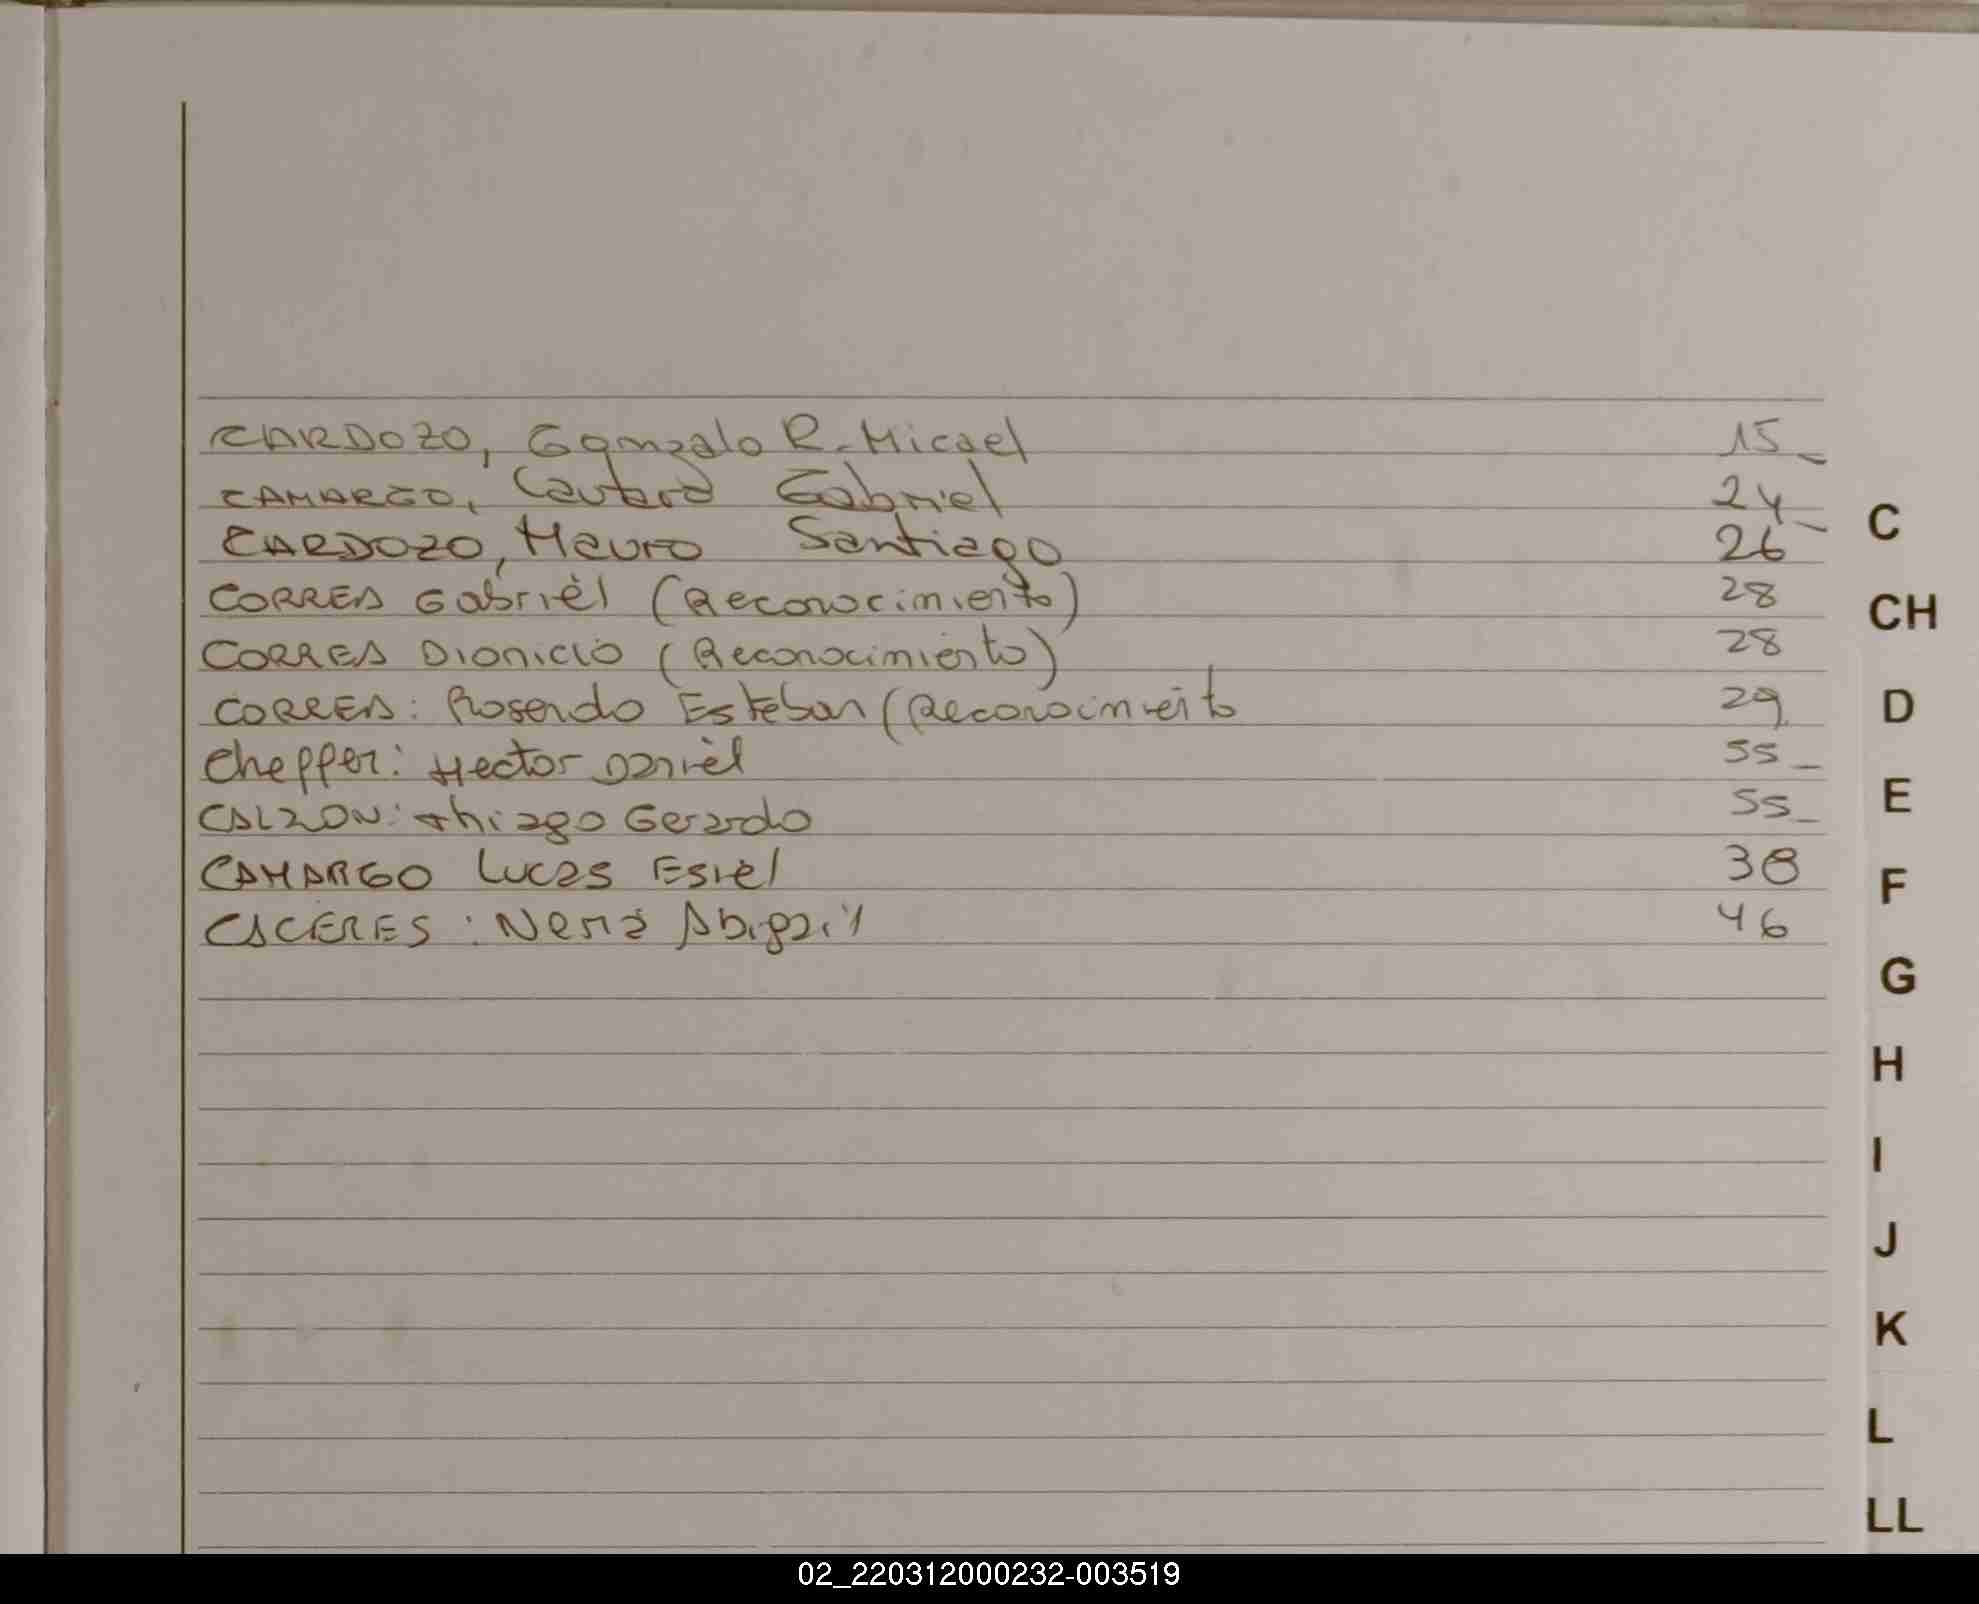 CARDOZO, Gonzalo R. Micael 15_
CAMARGO, Lautaro Gabriel 24_
CARDOZO, Mauro Santiago 26
CORREA Gabriel (Reconocimiento) 28
CORREA DIONICIO (Reconocimiento) 28
CORREA: Rosendo Esteban (Reconocimiento 29
Chepper: Hector Daniel 55_
CALZON: thiago Gerardo 55_
CAMARGO Lucas Esiel 38
CACERES: Neria Abigail 46
C
CH
D
E
F
G
H
I
J
K
L
LL
02_220312000232-003519